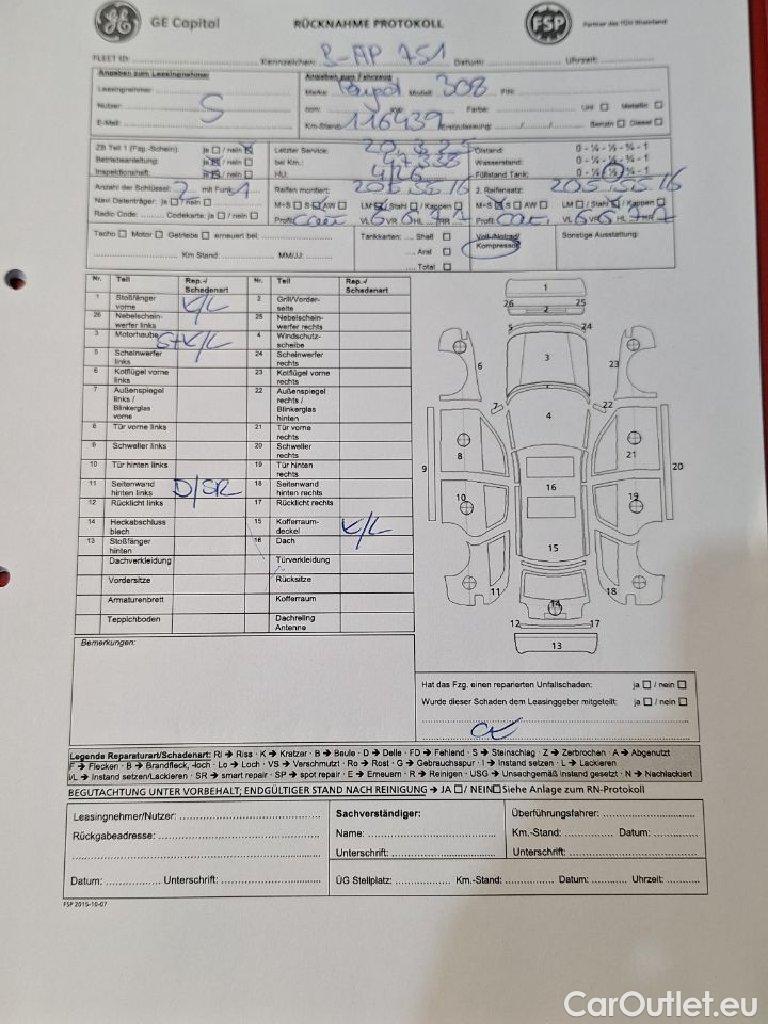 GE Capital RÜCKNAHME PROTOKOLL FSP Partner des TÜV Rheinland
Kennzeichen: B-AP 751 Datum: Uhrzeit:
Angaben zum Leasingnehmer Angaben zum Fahrzeug
Leasingnehmer: Marke: Peugot Modell: 308 FIN:
Nutzer: S Farbe: Uni Metallic
E-Mail: Km-Stand: 116439 Erstzulassung: / / Benzin Diesel
ZB Teil 1 (Fzg.-Schein): ja / nein Letzter Service: Ölstand: 0 - ¼ - ½ - ¾ - 1
Betriebsanleitung: ja / nein bei Km.: 47338 Wasserstand: 0 - ¼ - ½ - ¾ - 1
Inspektionsheft: ja / nein HU: 4/26 Füllstand Tank: 0 - ¼ - ½ - ¾ - 1
Anzahl der Schlüssel: 2 mit Funk: 1 Reifen montiert: 205 55 16 2. Reifensatz: 205 55 16
Navi Datenträger: ja / nein M+S S AW LM / Stahl / Kappen M+S S AW LM / Stahl / Kappen
Radio Code: Codekarte: ja / nein Profil: VL 6 VR 6 HL 7 HR 7 Profil: VL 6 VR 6 HL 7 HR 7
Tacho Motor Getriebe erneuert bei: Tankkarten: Shell Voll-/Notrad Sonstige Ausstattung:
Km Stand: MM/JJ: Aral Kompressor
Total
Nr. Teil Rep.-/ Schadenart Nr. Teil Rep.-/ Schadenart
1 Stoßfänger vorne K/L 2 Grill/Vorderseite
26 Nebelscheinwerfer links 25 Nebelscheinwerfer rechts
3 Motorhaube S+K/L 4 Windschutzscheibe
5 Scheinwerfer links 24 Scheinwerfer rechts
6 Kotflügel vorne links 23 Kotflügel vorne rechts
7 Außenspiegel links / Blinkerglas vorne 22 Außenspiegel rechts / Blinkerglas hinten
8 Tür vorne links 21 Tür vorne rechts
9 Schweller links 20 Schweller rechts
10 Tür hinten links 19 Tür hinten rechts
11 Seitenwand hinten links D/SR 18 Seitenwand hinten rechts
12 Rücklicht links 17 Rücklicht rechts
14 Heckabschluss blech 15 Kofferraumdeckel K/L
13 Stoßfänger hinten 16 Dach
Dachverkleidung Türverkleidung
Vordersitze Rücksitze
Armaturenbrett Kofferraum
Teppichboden Dachreling Antenne
1
26 25
2
5 24
6 3 23
7 22
4
9 8 21 20
10 16 19
15
11 14 18
12 17
13
Bemerkungen:
Hat das Fzg. einen reparierten Unfallschaden: ja / nein
Wurde dieser Schaden dem Leasinggeber mitgeteilt: ja / nein
Legende Reparaturart/Schadenart: RI → Riss · K → Kratzer · B → Beule · D → Delle · FD → Fehlend · S → Steinschlag · Z → Zerbrochen · A → Abgenutzt
F → Flecken · B → Brandfleck, -loch · Lo → Loch · VS → Verschmutzt · Ro → Rost · G → Gebrauchsspur · I → Instand setzen · L → Lackieren
I/L → Instand setzen/Lackieren · SR → smart repair · SP → spot repair · E → Erneuern · R → Reinigen · USG → Unsachgemäß instand gesetzt · N → Nachlackiert
BEGUTACHTUNG UNTER VORBEHALT; ENDGÜLTIGER STAND NACH REINIGUNG → JA / NEIN Siehe Anlage zum RN-Protokoll
Leasingnehmer/Nutzer: Sachverständiger: Überführungsfahrer:
Rückgabeadresse: Name: Km.-Stand: Datum:
Unterschrift: Unterschrift:
Datum: Unterschrift: ÜG Stellplatz: Km.-Stand: Datum: Uhrzeit:
FSP 2015-10-07
CarOutlet.eu